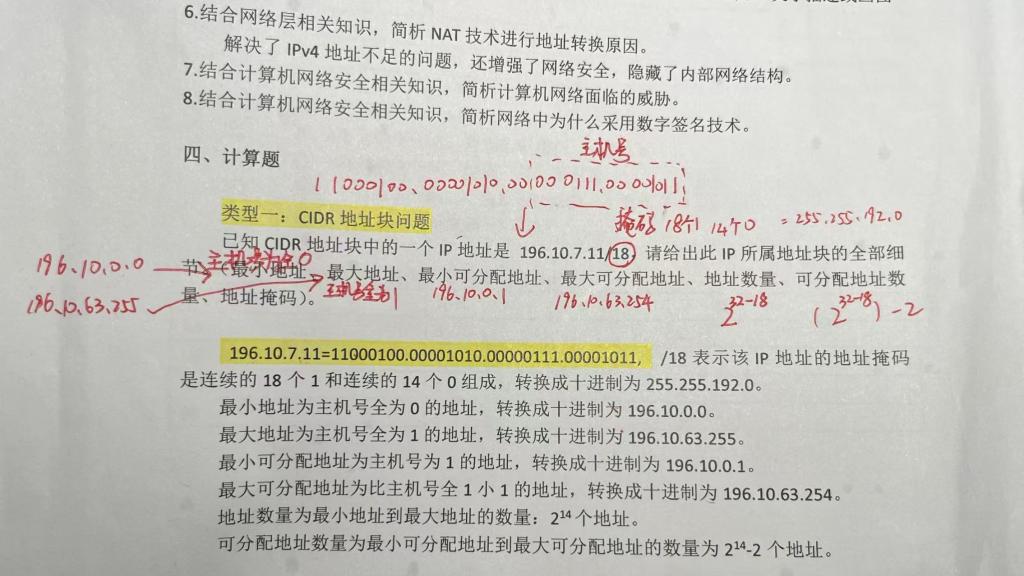 6.结合网络层相关知识，简析 NAT 技术进行地址转换原因。
解决了 IPv4 地址不足的问题，还增强了网络安全，隐藏了内部网络结构。
7.结合计算机网络安全相关知识，简析计算机网络面临的威胁。
8.结合计算机网络安全相关知识，简析网络中为什么采用数字签名技术。
主机号
四、计算题
11000100.00001010.00000111.00001011
类型一：CIDR 地址块问题
掩码 18个1 14个0 = 255.255.192.0
已知 CIDR 地址块中的一个 IP 地址是 196.10.7.11/18，请给出此 IP 所属地址块的全部细
196.10.0.0 主机号为全0
节（最小地址、最大地址、最小可分配地址、最大可分配地址、地址数量、可分配地址数
196.10.63.255 主机号全为1 196.10.0.1 196.10.63.254 2^32-18 (2^32-18)-2
量、地址掩码）。
196.10.7.11=11000100.00001010.00000111.00001011, /18 表示该 IP 地址的地址掩码
是连续的 18 个 1 和连续的 14 个 0 组成，转换成十进制为 255.255.192.0。
最小地址为主机号全为 0 的地址，转换成十进制为 196.10.0.0。
最大地址为主机号全为 1 的地址，转换成十进制为 196.10.63.255。
最小可分配地址为主机号为 1 的地址，转换成十进制为 196.10.0.1。
最大可分配地址为比主机号全 1 小 1 的地址，转换成十进制为 196.10.63.254。
地址数量为最小地址到最大地址的数量：2^14 个地址。
可分配地址数量为最小可分配地址到最大可分配地址的数量为 2^14-2 个地址。